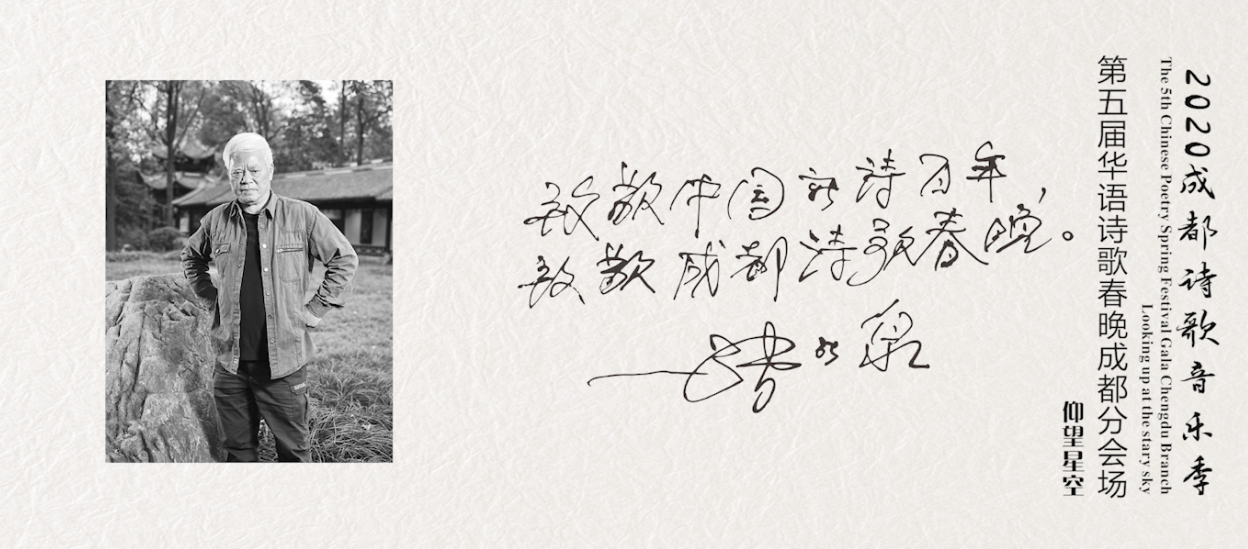 2020成都诗歌音乐季
The 5th Chinese Poetry Spring Festival Gala Chengdu Branch
Looking up at the stary sky
第五届华语诗歌春晚成都分会场
仰望星空
致敬中国新诗百年，
致敬成都诗歌春晚。
张新泉